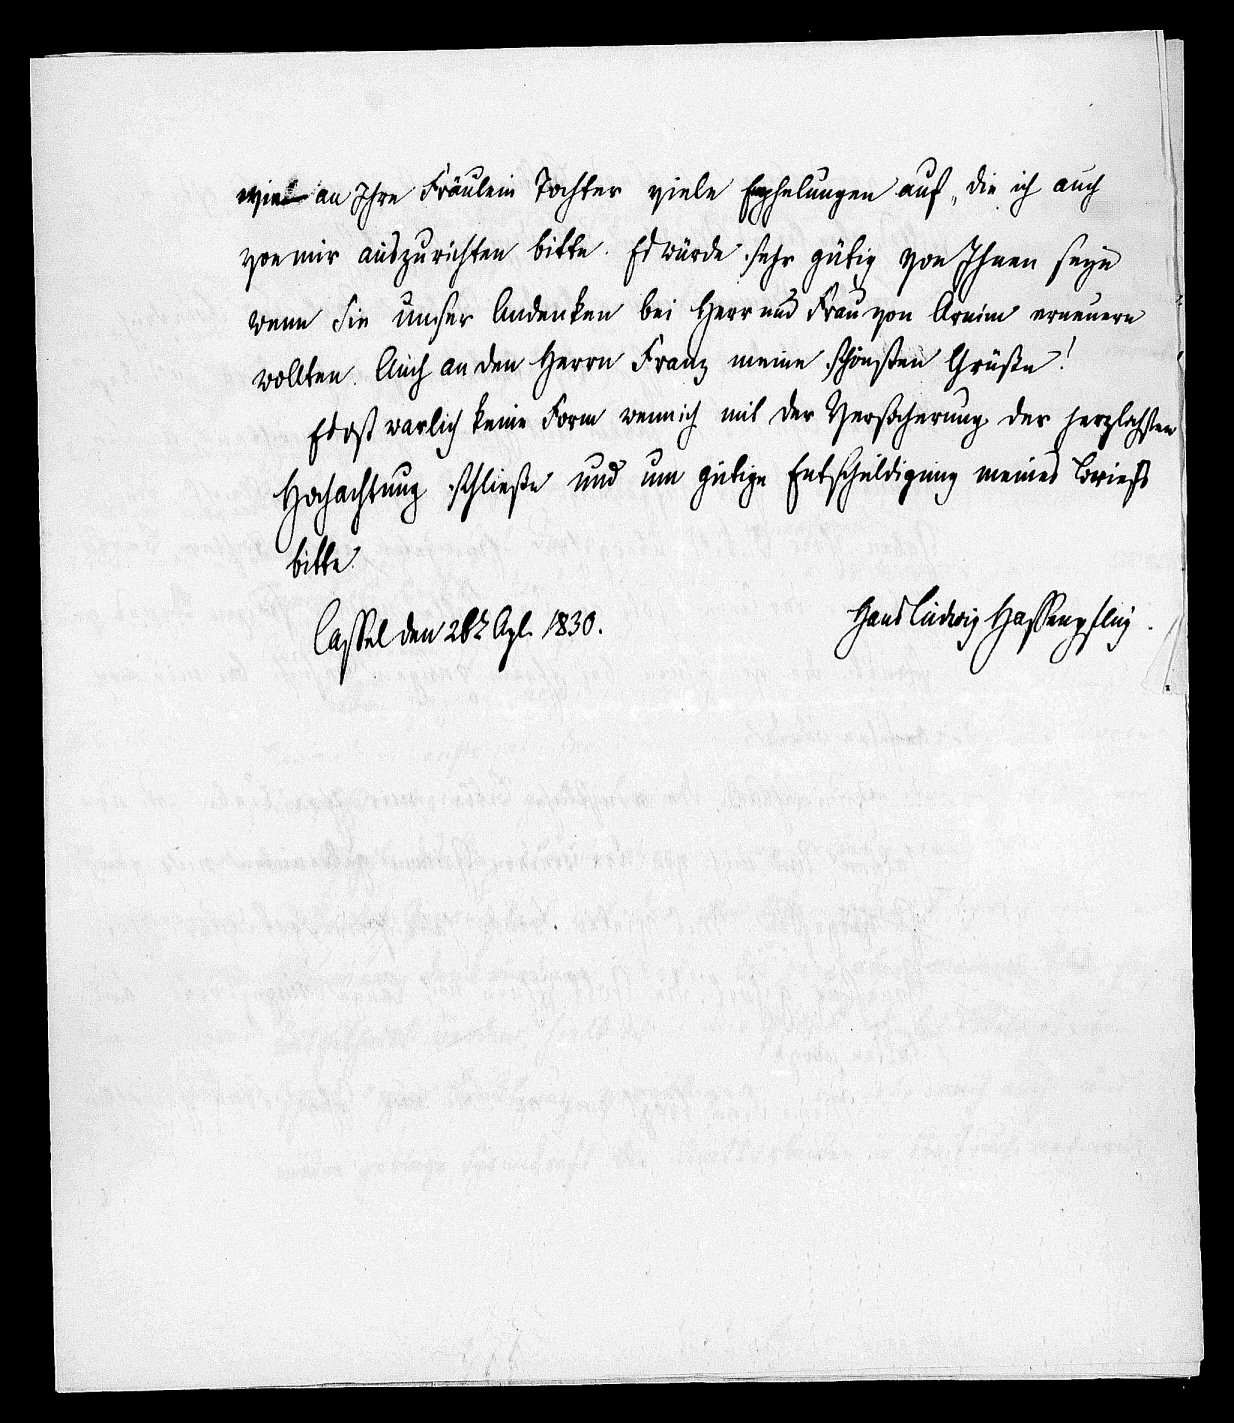 viel an Ihre Fräulein Tochter viele Emphelungen auf, die ich auch
von mir auszurichten bitte. Es würde sehr gütig von Ihnen seyn
wenn Sie unser Andenken bei Herr und Frau von Arnim erneuern
wollten. Auch an den Herrn Franz meine schönsten Grüße!
Es ist warlich keine Form wenn ich mit der Versicherung der herzlichsten
Hochachtung schließe und um gütige Entschuldigung meines Briefs
bitte.
Cassel den 26t Apl. 1830.
Hans Ludwig Hassenpflug.